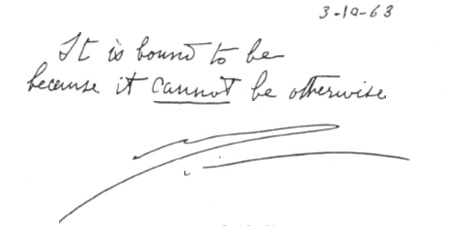 3-10-63
It is bound to be
because it cannot be otherwise